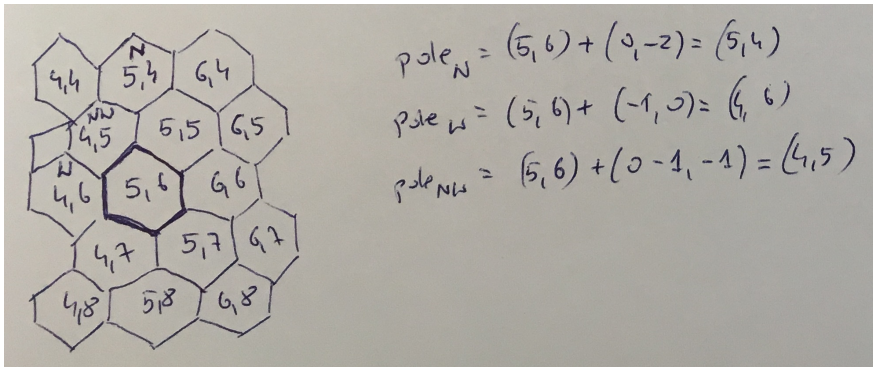 N
4,4 5,4 6,4
NW
4,5 5,5 6,5
W
4,6 5,6 6,6
4,7 5,7 6,7
4,8 5,8 6,8
pole N = (5,6) + (0,-2) = (5,4)
pole W = (5,6) + (-1,0) = (4,6)
pole NW = (5,6) + (0-1,-1) = (4,5)